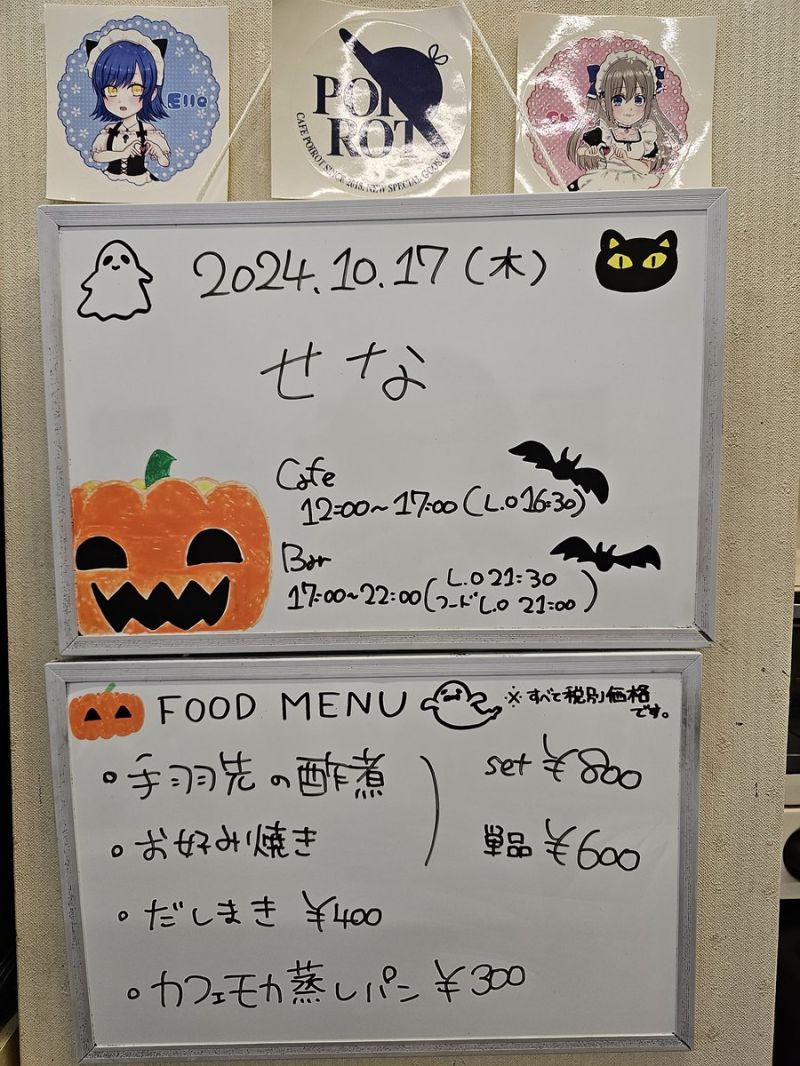 Elle
POI
ROT
CAFE POIROT SINCE 2018. NEW SPECIAL GOODS
2024.10.17(木)
せな
Cafe
12:00~17:00(L.O 16:30)
Bar
17:00~22:00(L.O 21:30
フードL.O 21:00)
FOOD MENU ※すべて税別価格
です。
・手羽先の酢煮 set ¥800
・お好み焼き 単品 ¥600
・だしまき ¥400
・カフェモカ蒸しパン ¥300